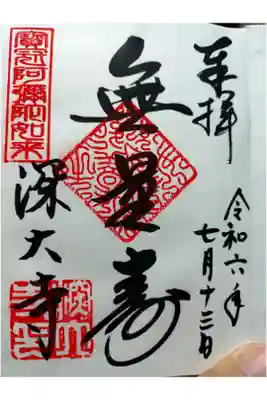 奉拝
令和六年
七月十三日
無量寿
寳冠阿彌陀如来
深大寺